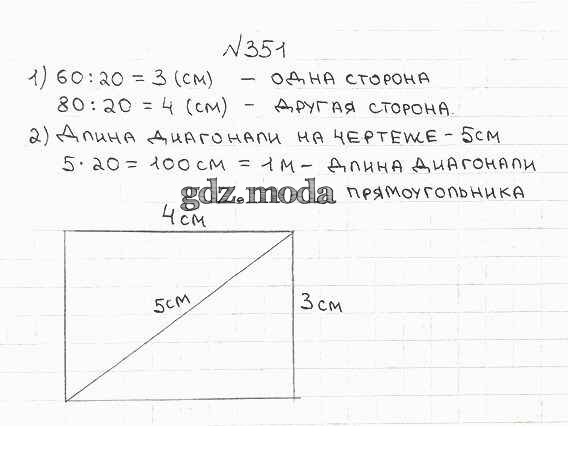 №351
1) 60:20 = 3 (см) – одна сторона
80:20 = 4 (см) – другая сторона.
2) Длина диагонали на чертеже – 5см
5·20 = 100см = 1м – длина диагонали
gdz.moda прямоугольника
4см
5см
3см